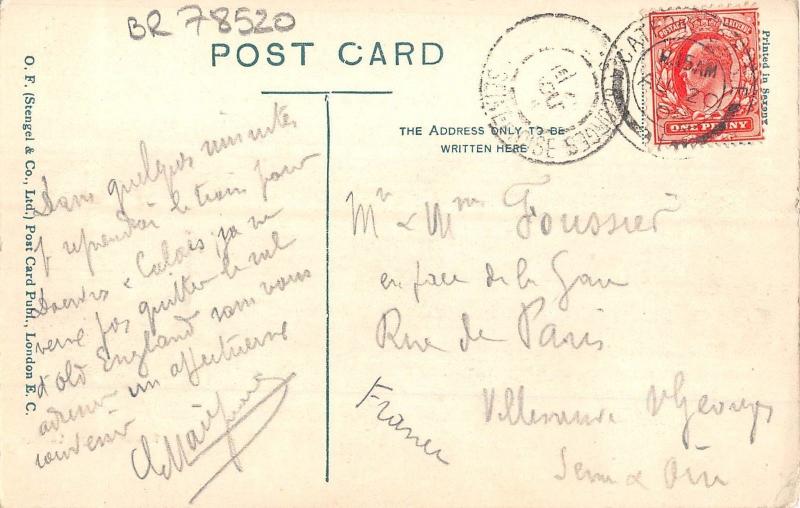 BR 78520
POST CARD
THE ADDRESS ONLY TO BE
WRITTEN HERE
Printed in Saxony
O. F. (Stengel & Co., Ltd.) Post Card Publ., London E. C.
POSTAGE REVENUE
ONE PENNY
15 AM
20
Dans quelques minutes
je reprendrai le train pour
Douvres & Calais je ne
veux pas quitter le sol
d'old England sans vous
adresser un affectueux
souvenir
Mr & Mme Foussier
en face de la Gare
Rue de Paris
Villeneuve St Georges
Seine & Oise
France